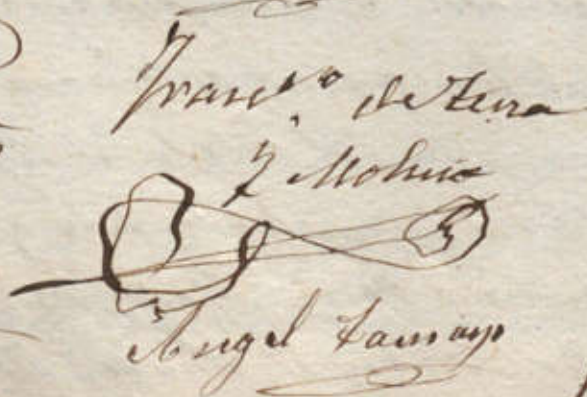 Franc.co de
y Molina
Angel Tamayo